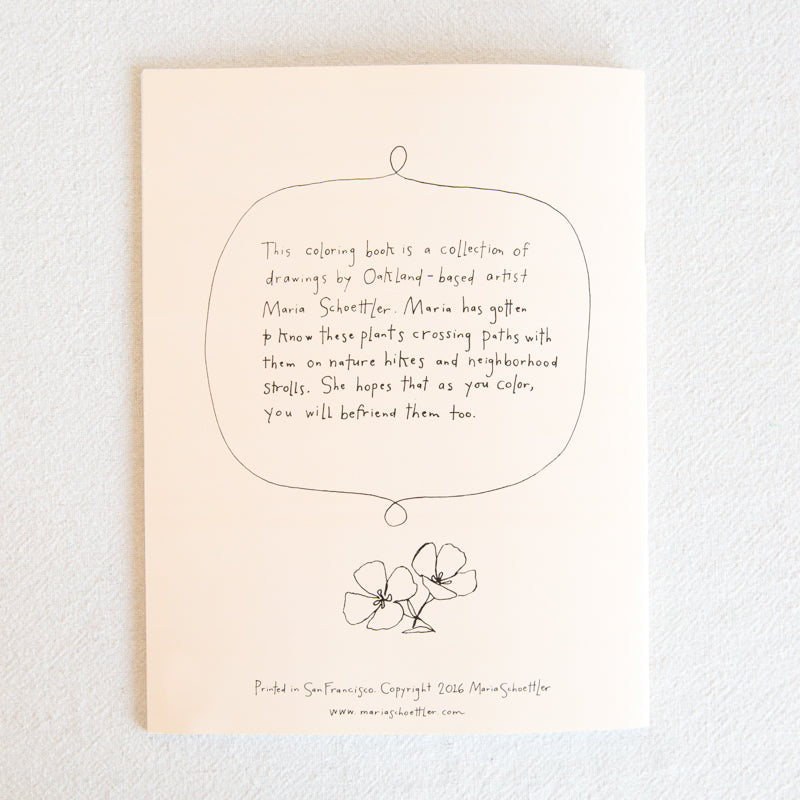 This coloring book is a collection of
drawings by Oakland-based artist
Maria Schoettler. Maria has gotten
to know these plants crossing paths with
them on nature hikes and neighborhood
strolls. She hopes that as you color,
you will befriend them too.
Printed in San Francisco. Copyright 2016 Maria Schoettler
www.mariaschoettler.com